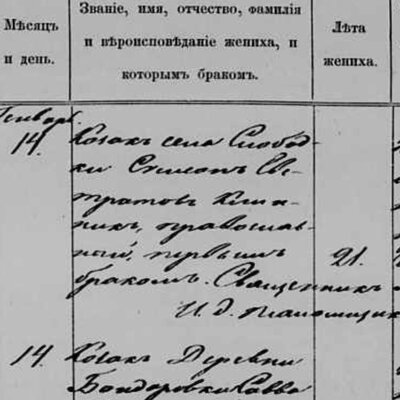 Мѣсяцъ и день.
Званіе, имя, отчество, фамилія и вѣроисповѣданіе жениха, и которымъ бракомъ.
Лѣта жениха.
Январь
14.
Козакъ села Слобод-
ки Симеонъ Ев-
тратов
никъ, православ-
ный, первымъ
бракомъ. Священникъ
И. д.
21.
14.
Козакъ Деревни
Бондаровки Савва